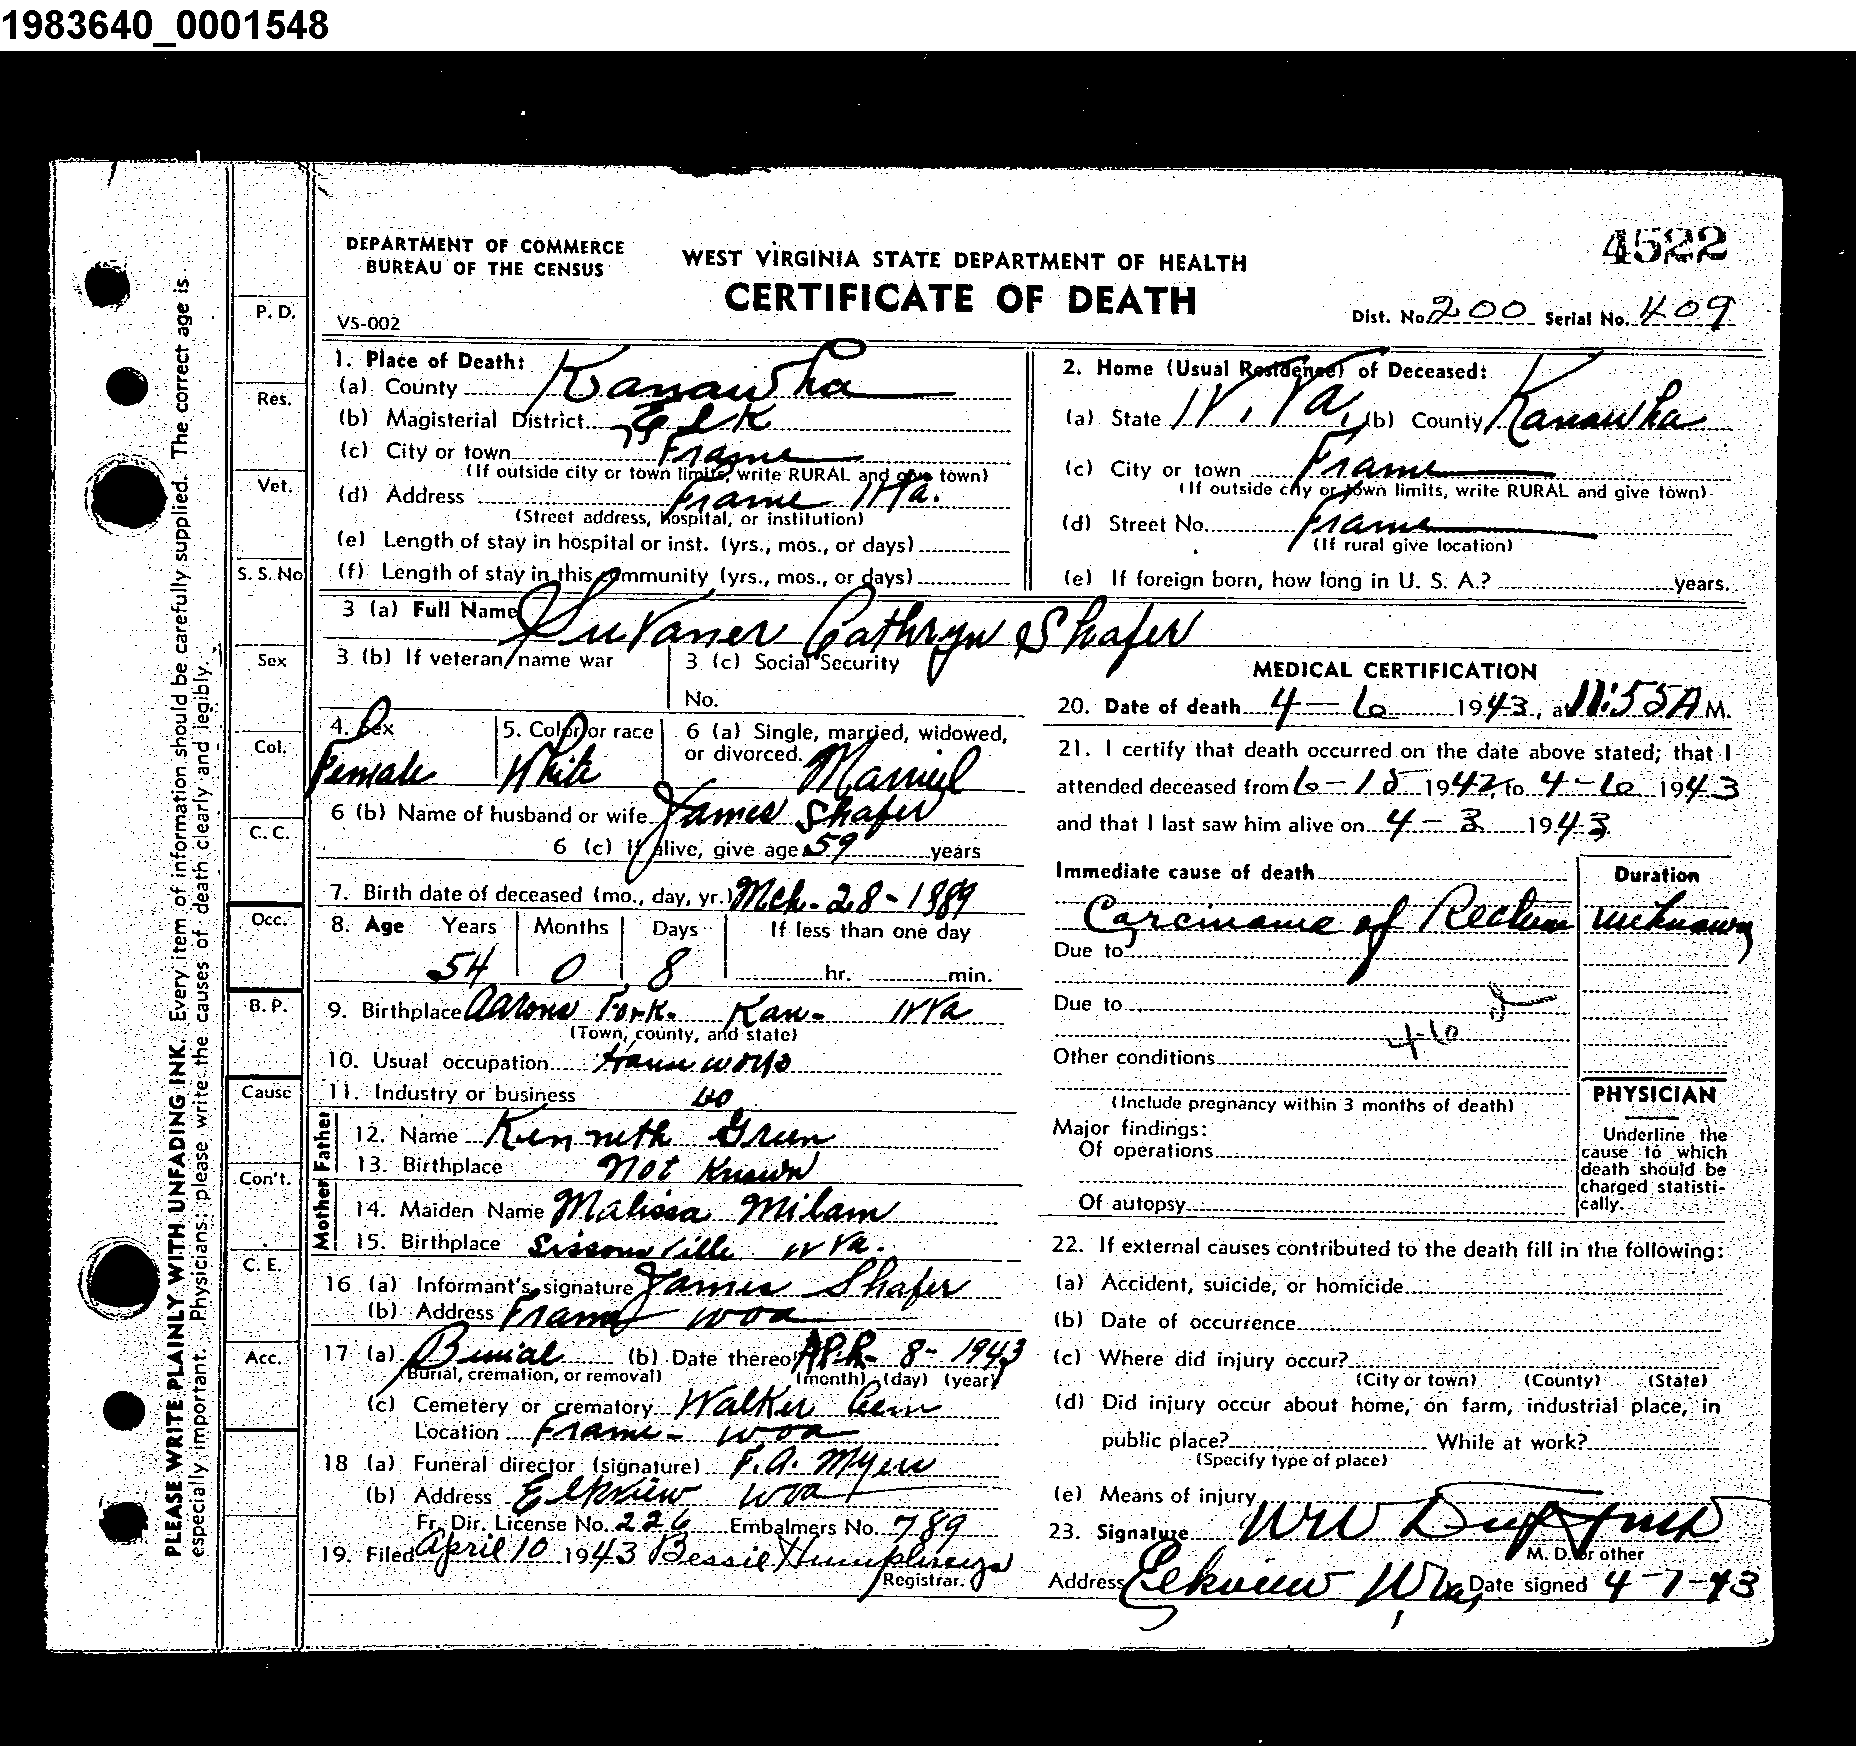 1983640_0001548
4522
DEPARTMENT OF COMMERCE
BUREAU OF THE CENSUS
WEST VIRGINIA STATE DEPARTMENT OF HEALTH
CERTIFICATE OF DEATH
VS-002
Dist. No. 200 Serial No. 409
1. Place of Death:
(a) County Kanawha
(b) Magisterial District Elk
(c) City or town Frame
(If outside city or town limits, write RURAL and give town)
(d) Address Frame W Va.
(Street address, hospital, or institution)
(e) Length of stay in hospital or inst. (yrs., mos., or days)
(f) Length of stay in this community (yrs., mos., or days)
2. Home (Usual Residence) of Deceased:
(a) State W. Va. (b) County Kanawha
(c) City or town Frame
(If outside city or town limits, write RURAL and give town)
(d) Street No. Frame
(If rural give location)
(e) If foreign born, how long in U. S. A.? years.
3 (a) Full Name Suvaner Cathryn Shafer
3. (b) If veteran, name war
3 (c) Social Security
No.
4. Sex
Female
5. Color or race
White
6 (a) Single, married, widowed,
or divorced. Married
6 (b) Name of husband or wife James Shafer
6 (c) If alive, give age 59 years
7. Birth date of deceased (mo., day, yr.) Mch-28-1889
8. Age Years Months Days If less than one day
54 0 8 hr. min.
9. Birthplace Aarons Fork. Kan- W Va
(Town, county, and state)
10. Usual occupation Housework
11. Industry or business
Father
12. Name Kenneth Green
13. Birthplace Not Known
Mother
14. Maiden Name Malissa Milam
15. Birthplace Sissonville W Va.
16 (a) Informant's signature James Shafer
(b) Address Frame wva
17 (a) Burial (b) Date thereof APR- 8- 1943
(Burial, cremation, or removal) (month) (day) (year)
(c) Cemetery or crematory Walker Cem
Location Frame- wva
18 (a) Funeral director (signature) F. A. Myers
(b) Address Elkview wva
Fr. Dir. License No. 226 Embalmers No. 789
19. Filed April 10 1943 Bessie Humphreys
Registrar.
MEDICAL CERTIFICATION
20. Date of death 4-6 1943, at 11:55 A M.
21. I certify that death occurred on the date above stated; that I
attended deceased from 6-15 1942, to 4-6 1943
and that I last saw him alive on 4-3 1943
Immediate cause of death
Duration
Carcinoma of Rectum unknown
Due to
Due to
46
Other conditions
(Include pregnancy within 3 months of death)
Major findings:
Of operations
Of autopsy
PHYSICIAN
Underline the
cause to which
death should be
charged statisti-
cally.
22. If external causes contributed to the death fill in the following:
(a) Accident, suicide, or homicide
(b) Date of occurrence
(c) Where did injury occur?
(City or town) (County) (State)
(d) Did injury occur about home, on farm, industrial place, in
public place? While at work?
(Specify type of place)
(e) Means of injury
23. Signature
M. D. or other
Address Elkview W Va, Date signed 4-7-43
P. D.
Res.
Vet.
S. S. No
Sex
Col.
C. C.
Occ.
B. P.
Cause
Con't.
C. E.
Acc.
PLEASE WRITE PLAINLY WITH UNFADING INK. Every item of information should be carefully supplied. The correct age is
especially important. Physicians: please write the causes of death clearly and legibly.